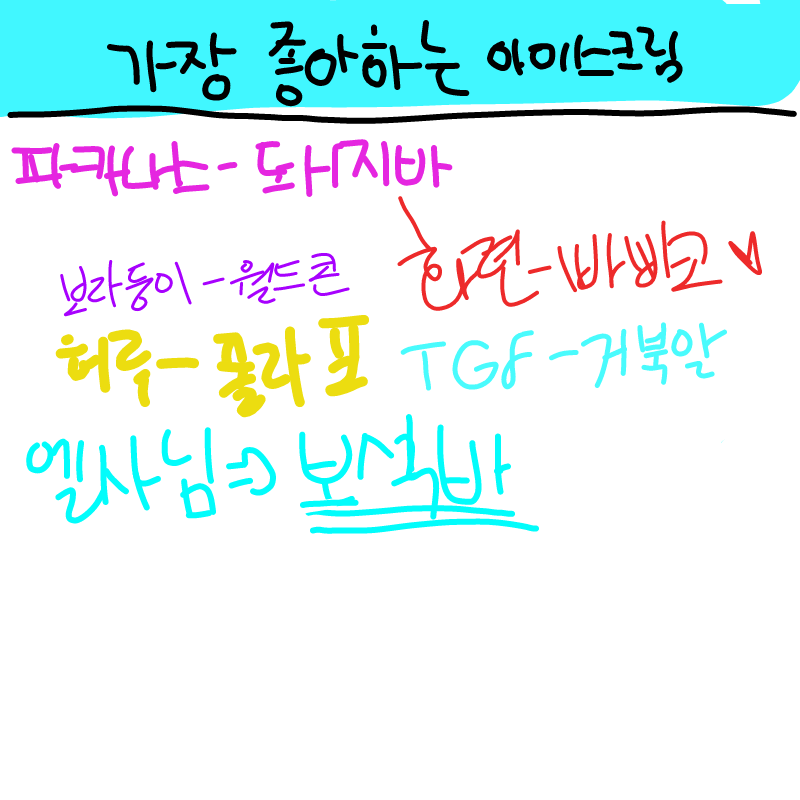 가장 좋아하는 아이스크림
파카나스 - 도ㅐ지바
하련 - 빠삐코
보라둥이 - 월드콘
혀루 - 폴라포
TGF - 거북알
엘사님 => 보석바